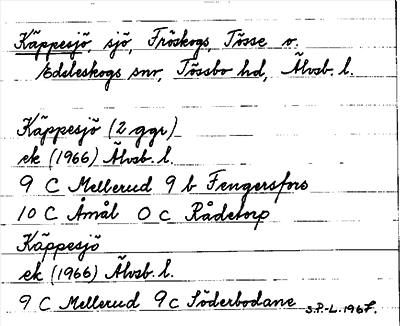 Käppesjö, sjö, Fröskogs, Tösse o.
Edsleskogs snr, Tössbo hd, Älvsb. l.
Käppesjö (2 ggr)
ek (1966) Älvsb. l.
9 C Mellerud 9 b Fengersfors
10 C Åmål 0 c Rådetorp
Käppesjö
ek (1966) Älvsb. l.
9 C Mellerud 9 c Söderbodane S.P.-L. 1967.